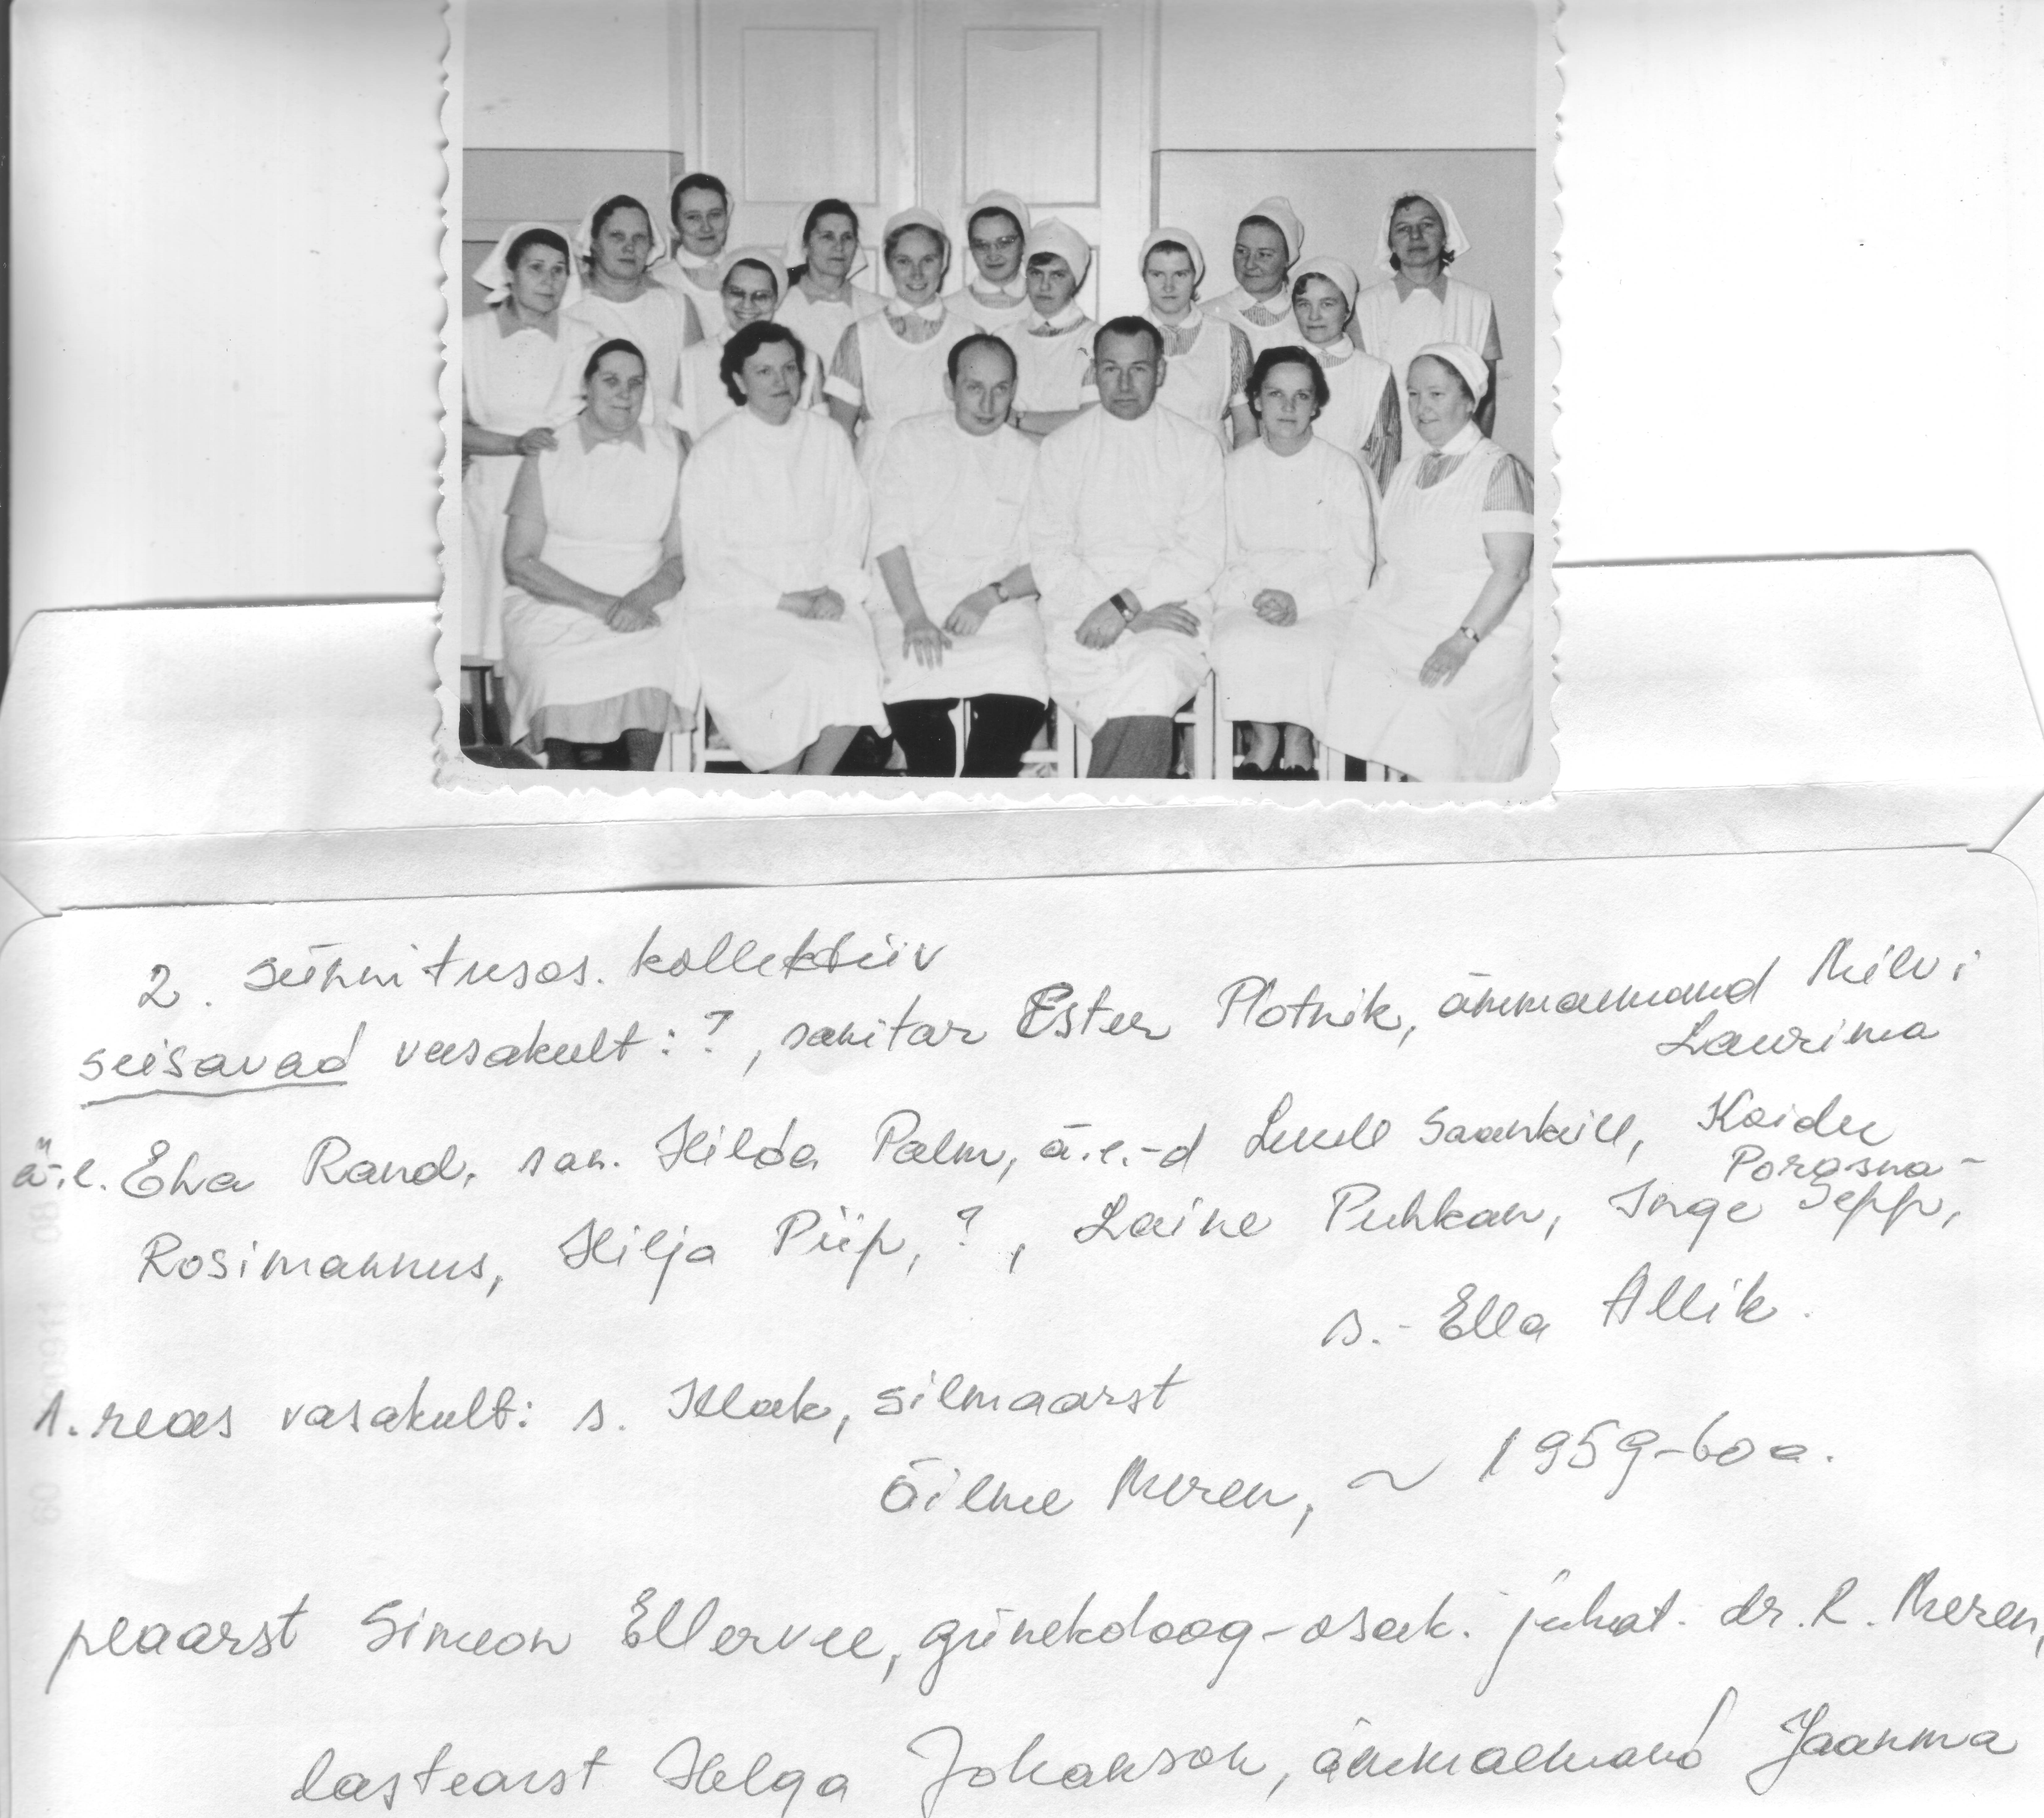 2. sünnitusos. kollektiiv
seisavad vasakult: ?, sanitar Ester Plotnik, ämmaemand Milvi
Laurima
ä.e. Eha Rand, san. Hilda Palm, ä.e.-d Luule Saankull, Koidu
Porosma-
Rosimannus, Hilja Piip, ?, Laine Puhkan, Inge Sepp,
s.- Ella Allik.
1. reas vasakult: s. Klak, silmaarst
Õilme Meren, ~ 1959-60 a.
peaarst Simeon Ellervee, günekoloog-osak. juhat. dr. R. Meren,
lastearst Helga Johanson, ämmaemand Jaanma